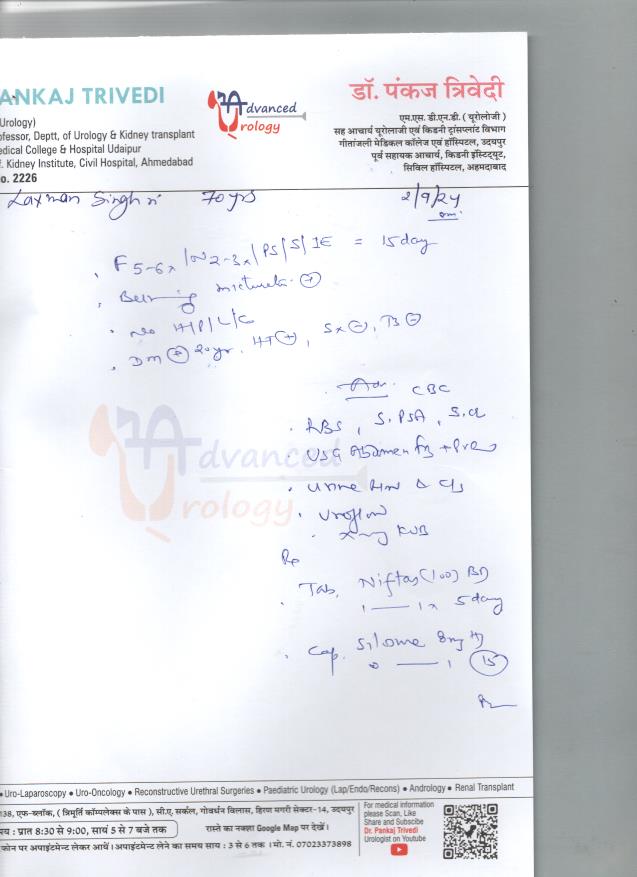 ANKAJ TRIVEDI
Urology)
ofessor, Deptt. of Urology & Kidney transplant
edical College & Hospital Udaipur
f. Kidney Institute, Civil Hospital, Ahmedabad
o. 2226
Advanced
Urology
डॉ. पंकज त्रिवेदी
एम.एस. डी.एन.बी. ( यूरोलोजी )
सह आचार्य यूरोलाजी एवं किडनी ट्रांसप्लांट विभाग
गीतांजली मेडिकल कॉलेज एवं हॉस्पिटल, उदयपुर
पूर्व सहायक आचार्य, किडनी इंस्टिट्यूट,
सिविल हॉस्पिटल, अहमदाबाद
Laxman Singh 70 yrs 2/9/24
F 5-6x / N 2-3x / PS / S / IE = 15 day
Burning micturition +
No H/P/L/C
DM + 20 yr, HT +, Sx -, TB -
Adv. CBC
RBS, S. PSA, S. cr
USG Abdomen
Urine & C/s
Uroflow
X-ray KUB
Advanced
Urology
Rx
Tab. Niftas (100) BD
1 — 1 x 5 day
Cap. 8mg
0 — 1 15
• Uro-Laparoscopy • Uro-Oncology • Reconstructive Urethral Surgeries • Paediatric Urology (Lap/Endo/Recons) • Andrology • Renal Transplant
138, एफ-ब्लॉक, ( त्रिमूर्ति कॉम्पलेक्स के पास ), सी.ए. सर्कल, गोवर्धन विलास, हिरण मगरी सेक्टर-14, उदयपुर
मय : प्रात 8:30 से 9:00, सायं 5 से 7 बजे तक रास्ते का नक्शा Google Map पर देखें।
फोन पर अपाइंटमेन्ट लेकर आयें। अपाइंटमेन्ट लेने का समय सायं : 3 से 6 तक । मो. नं. 07023373898
For medical information
please Scan, Like
Share and Subscibe
Dr. Pankaj Trivedi
Urologist on Youtube